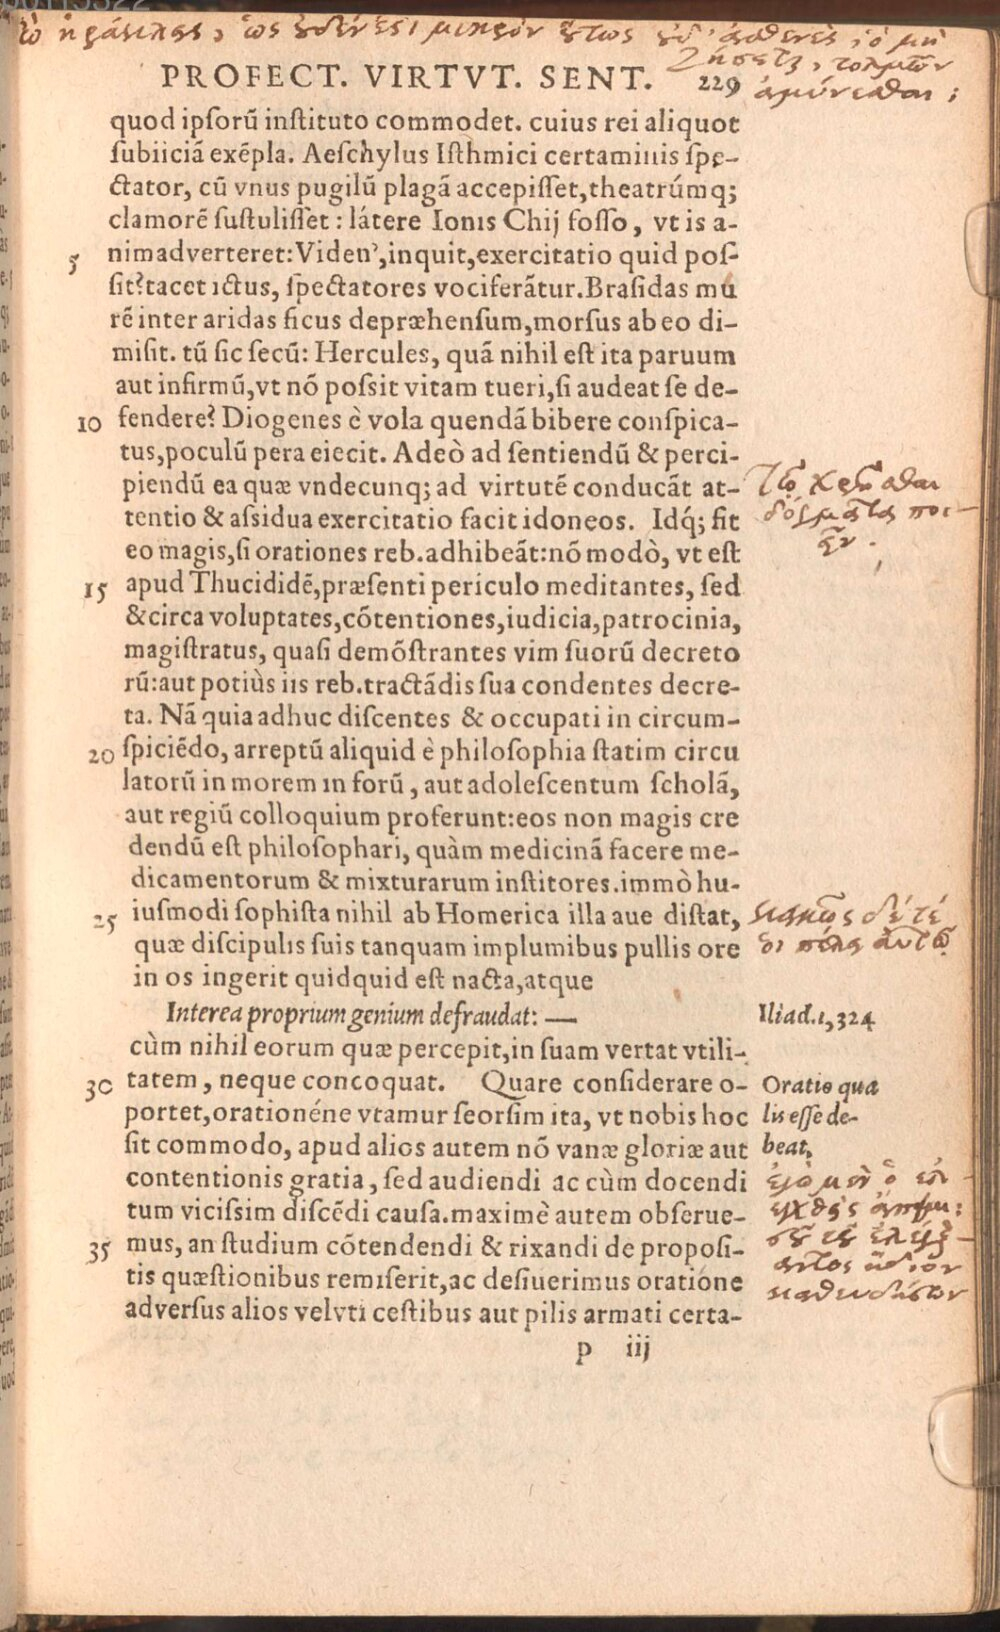 ὦ ἡράκλεις, ὡς οὐδέν ἐστι μικρὸν οὕτως οὐδ' ἀσθενὲς, ὃ μὴ
ζήσεται, τολμῶν
ἀμύνεσθαι;
PROFECT. VIRTVT. SENT. 229
quod ipsorũ instituto commodet. cuius rei aliquot
subiiciã exẽpla. Aeschylus Isthmici certaminis spe-
ctator, cũ vnus pugilũ plagã accepisset, theatrúmq;
clamorẽ sustulisset: látere Ionis Chij fosso, vt is a-
5 nimadverteret: Viden', inquit, exercitatio quid pos-
sit? tacet ictus, spectatores vociferãtur. Brasidas mu
rẽ inter aridas ficus depræhensum, morsus ab eo di-
misit. tũ sic secũ: Hercules, quã nihil est ita paruum
aut infirmũ, vt nõ possit vitam tueri, si audeat se de-
10 fendere? Diogenes è vola quendã bibere conspica-
tus, poculũ pera eiecit. Adeò ad sentiendũ & perci-
piendũ ea quæ vndecunq; ad virtutẽ conducãt at-
tentio & assidua exercitatio facit idoneos. Idq́; fit
eo magis, si orationes reb. adhibeãt: nõ modò, vt est
15 apud Thucididẽ, præsenti periculo meditantes, sed
& circa voluptates, cõtentiones, iudicia, patrocinia,
magistratus, quasi demõstrantes vim suorũ decreto
rũ: aut potiùs iis reb. tractãdis sua condentes decre-
ta. Nã quia adhuc discentes & occupati in circum-
20 spiciẽdo, arreptũ aliquid è philosophia statim circu
latorũ in morem in forũ, aut adolescentum scholã,
aut regiũ colloquium proferunt: eos non magis cre
dendũ est philosophari, quàm medicinã facere me-
dicamentorum & mixturarum institores. immò hu-
25 iusmodi sophista nihil ab Homerica illa aue distat,
quæ discipulis suis tanquam implumibus pullis ore
in os ingerit quidquid est nacta, atque
Interea proprium genium defraudat: —
cùm nihil eorum quæ percepit, in suam vertat vtili-
30 tatem, neque concoquat. Quare considerare o-
portet, orationéne vtamur seorsim ita, vt nobis hoc
sit commodo, apud alios autem nõ vanæ gloriæ aut
contentionis gratia, sed audiendi ac cùm docendi
tum vicissim discẽdi causa. maximè autem obserue-
35 mus, an studium cõtendendi & rixandi de proposi-
tis quæstionibus remiserit, ac desiuerimus oratione
adversus alios velvti cestibus aut pilis armati certa-
p iij
τῷ χρῆσθαι
δόγματα ποι-
εῖν.
κακῶς δέ τέ
οἱ πέλει αὐτῷ
Iliad. 1, 324
Oratio qua
lis esse de-
beat.